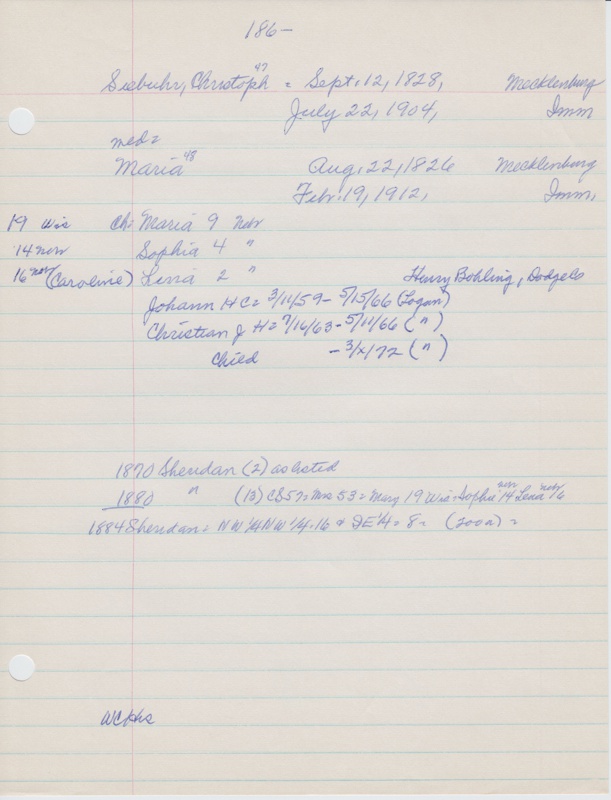 186-
Siebuhr, Christoph 47 = Sept. 12, 1828, Mecklenburg
July 22, 1904, Imm
med=
Maria 48 Aug. 22, 1826 Mecklenburg
Feb. 19, 1912, Imm.
19 Wis Ch: Maria 9 Nebr
14 Sophia 4 "
16 (Caroline) Lena 2 " Henry Bohling, Dodgels
Johann H C = 3/11/59 - 5/15/66 (Logan)
Christian J H = 7/16/63 - 5/11/66 (")
Child - 3/x/72 (")
1870 Sheridan (2) as listed
1880 " (13) CS 57 = Mra 53 = Mary 19 Wis = Sophia 14 Lena 16
1884 Sheridan = NW 1/4 NW 1/4 - 16 & SE 1/4 = 8 = (200a) =